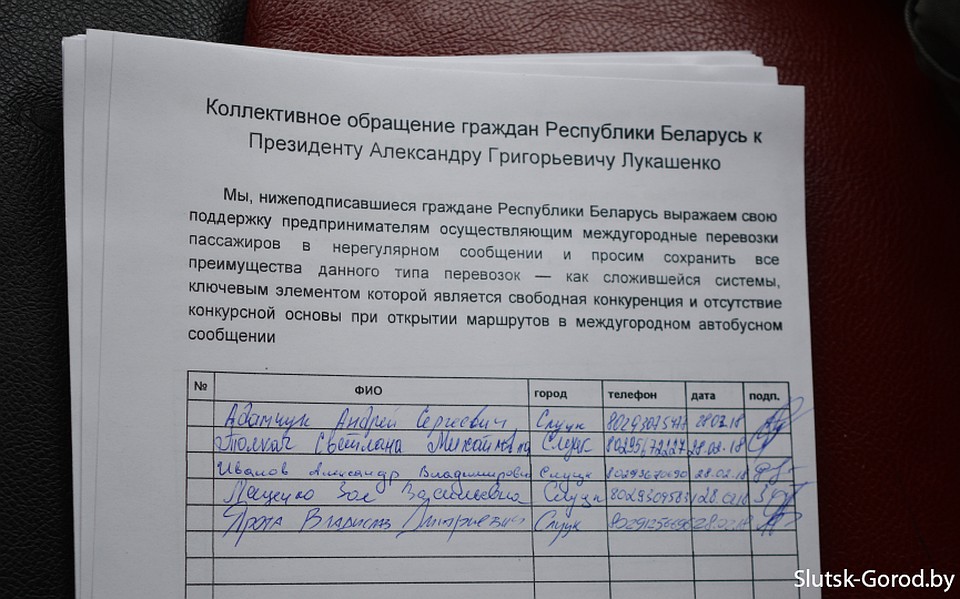 Коллективное обращение граждан Республики Беларусь к
Президенту Александру Григорьевичу Лукашенко
Мы, нижеподписавшиеся граждане Республики Беларусь выражаем свою
поддержку предпринимателям осуществляющим междугородные перевозки
пассажиров в нерегулярном сообщении и просим сохранить все
преимущества данного типа перевозок — как сложившейся системы,
ключевым элементом которой является свободная конкуренция и отсутствие
конкурсной основы при открытии маршрутов в междугородном автобусном
сообщении
№ ФИО город телефон дата подп.
Адамчук Андрей Сергеевич Слуцк
Толкач Светлана Михайловна Слуцк
Иванов Александр Владимирович Слуцк
Зоя Васильевна Слуцк
Владислав Дмитриевич Слуцк
Slutsk-Gorod.by